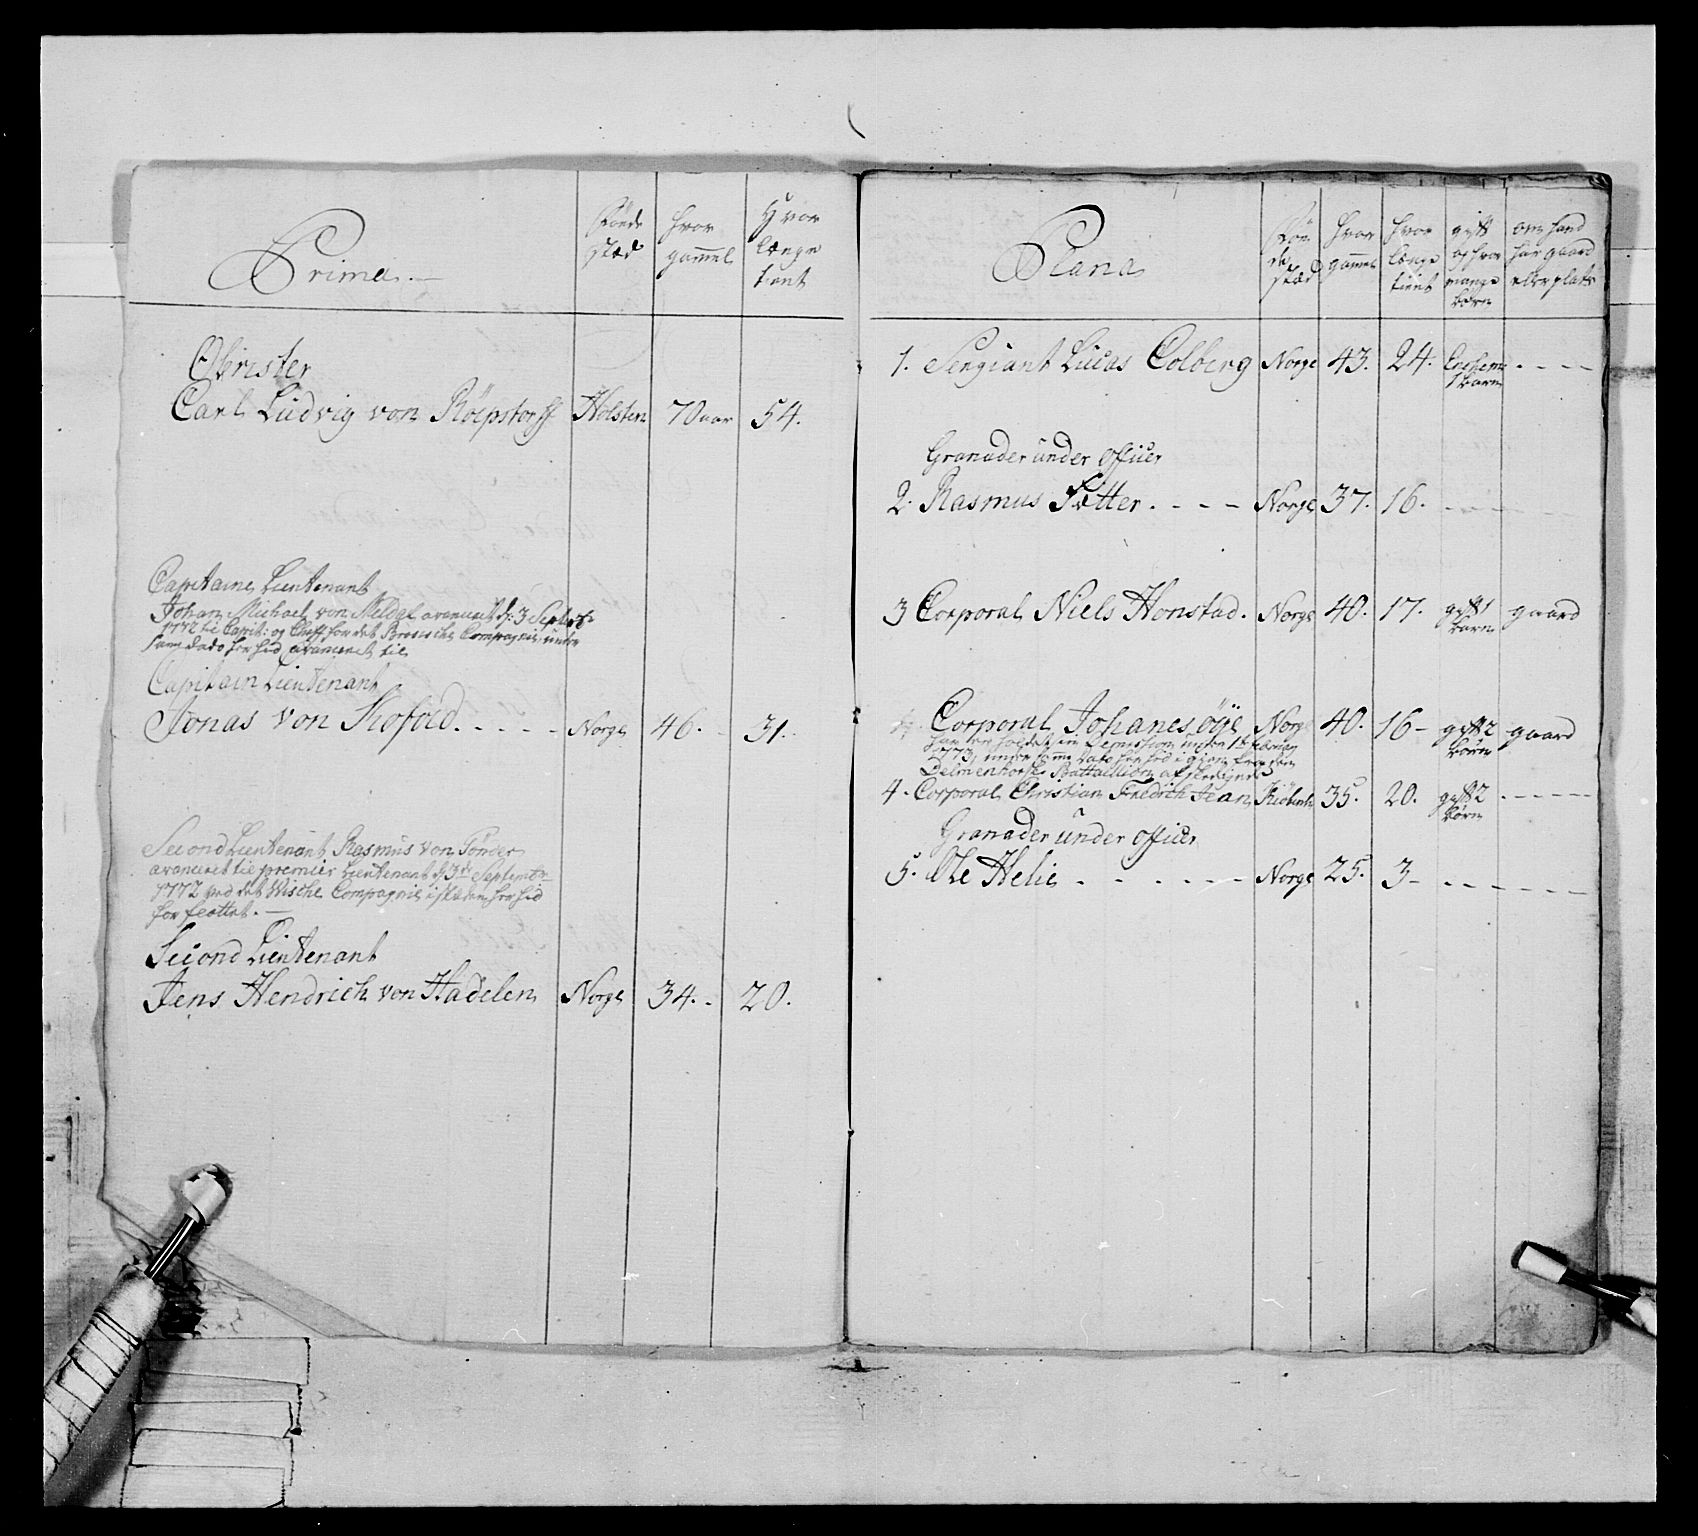 Prima.
Føde
stæd
hvor
gammel
Hvor
længe
tient
Obrister
Carl Ludvig von Röepstorff Holsten 70 aar 54.
Capitaine Lieutenant
Johan Michael von Meldal avanceret d: 3 Septebr
1772 til Capit: og Cheff for det Compagnie under
samme dato her hid avanceret til
Capitain Lieutenant
Jonas von Kofoed. . . . . Norge 46. 31.
Second Lieutenant Rasmus von Tønder
avanceret til premier Lieutenant d 3de Septembr
1772 ved det Wische Compagnie i steden her hid
forsættet.
Second Lieutenant
Jens Hendrich von Hadelen Norge 34. 20.
Plana
Fø-
de
stæd
hvor
gammel
hvor
længe
tient
gift
og hvor
mange
børn
om hand
har gaard
eller plats
1. Sergiant Lucas Colberg Norge 43. 24. . - - -
1 barn
Granader under officer
2. Rasmus Fætter . - - - Norge 37. 16. - - - -
3 Corporal Niels Honstad. Norge 40. 17. gift 1 gaard
barn
Corporal Johanes Øye Norge 40. 16 - gift 2 gaard
børn
1773, under samme dato her hid igien fra den
Delmenhorske Battaillion
4. Corporal Christian Fredrich Jean Kiøbenh 35. 20. gift 2 - - - -
børn
Granader under officer
5. Ole Helie . - - - - Norge 25. 3 - - - - -